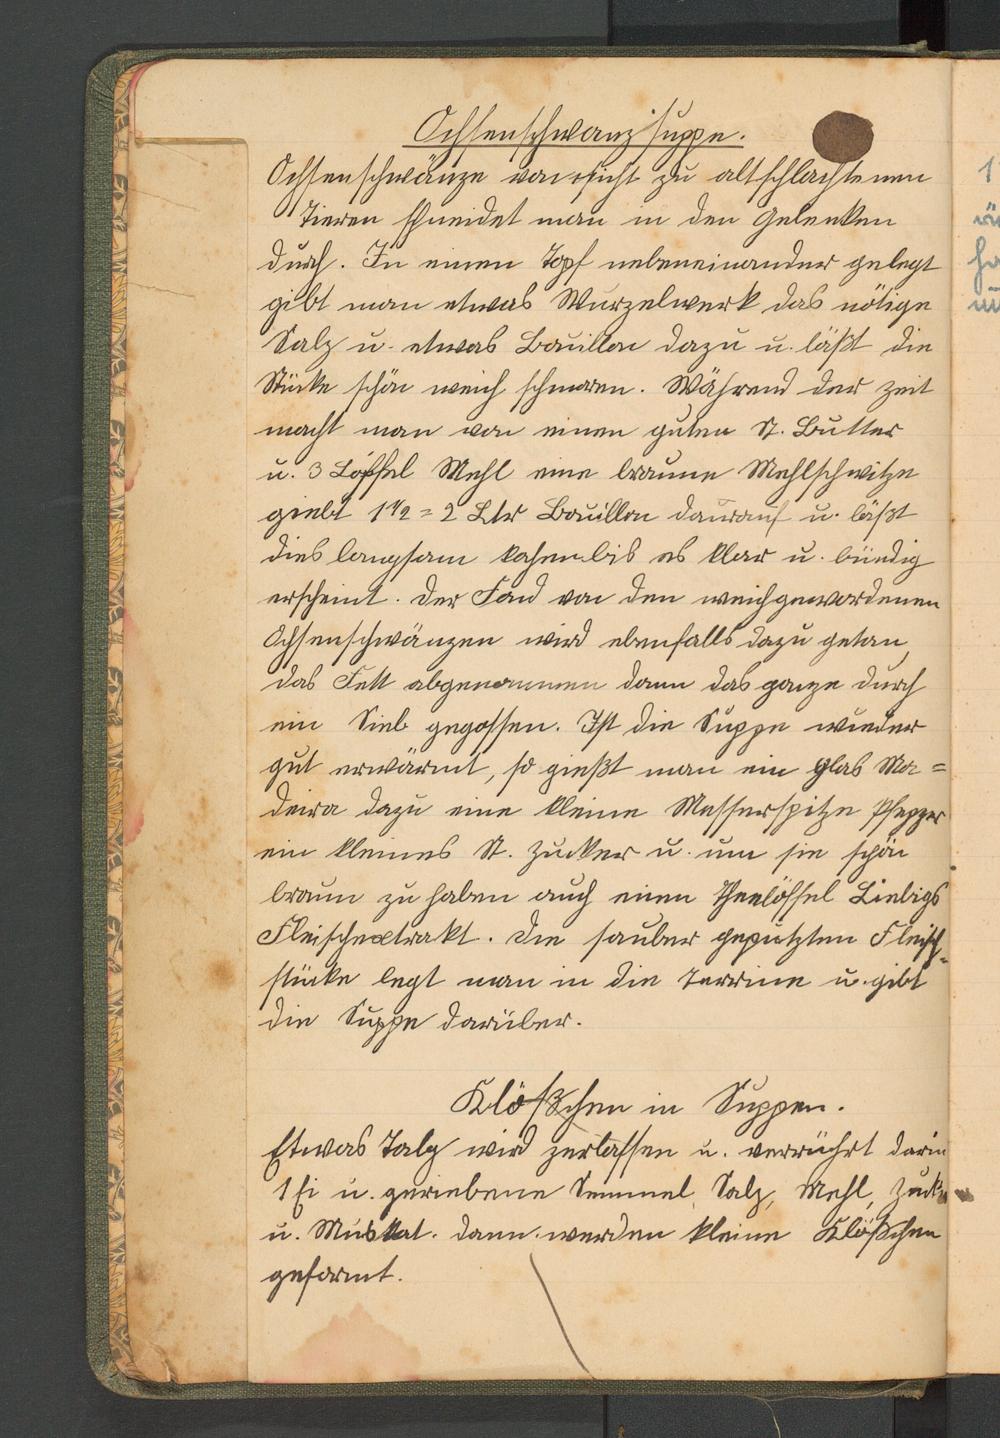 Ochsenschwanzsuppe.
Ochsenschwänze von nicht zu altschlachtenen
Tieren schneidet man in den Gelenken
durch. In einen Topf nebeneinander gelegt
gibt man etwas Wurzelwerk das nötige
Salz u. etwas Bouillon dazu u. läßt die
Stücke schön weich schmoren. Während der zeit
macht man von einen guten St. Butter
u. 3 Löffel Mehl eine braune Mehlschwitze
giebt 1 1/2 = 2 Ltr Bouillon darauf u. läßt
dies langsam kochen bis es klar u. bündig
erscheint. Der Fond von den weichgewordenen
Ochsenschwänzen wird ebenfalls dazu getan,
das Fett abgenommen dann das ganze durch
ein Sieb gegossen. Ist die Suppe wieder
gut erwärmt, so gießt man ein Glas Ma=
deira dazu eine kleine Messerspitze Pfeffer
ein kleines St. Zucker u. um sie schön
braun zu haben auch einen Theelöffel Liebigs
Fleischextrakt. Die sauber geputzten Fleisch-
stücke legt man in die Terrine u. gibt
die Suppe darüber.
Klößchen in Suppen.
Etwas Talg wird zerlassen u. verrührt darin
1 Ei u. geriebene Semmel, Salz, Mehl,
u. Muskat. dann werden kleine Klößchen
geformt.